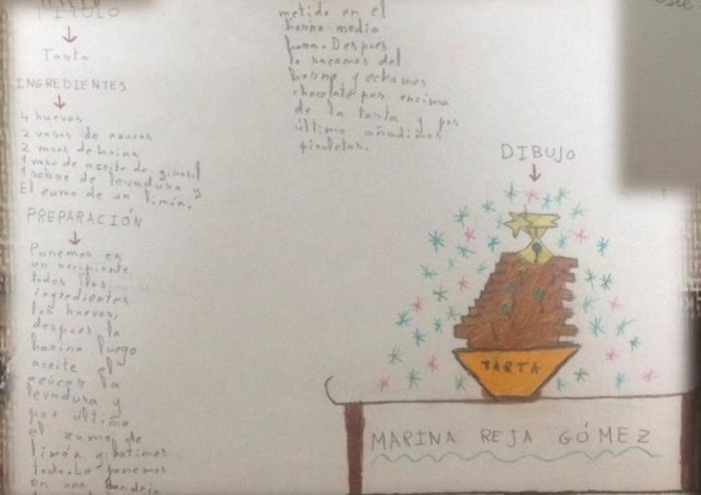 TÍTULO
Tarta
INGREDIENTES
4 huevos
2 vasos de azucar
2 vasos de harina
1 vaso de aceite de girasol
1 sobre de levadura y
El zumo de un limón.
PREPARACIÓN
Ponemos en
un recipiente
todos los
ingredientes
los huevos,
despues la
harina luego
aceite el
azúcar la
levadura y
por último
el zumo de
limón y batimos
todo. Lo ponemos
en una bandeja
metido en el
horno media
hora. Despues
lo sacamos del
horno y echamos
chocolate por encima
de la tarta y por
último añadimos
piruletas.
DIBUJO
TARTA
MARINA REJA GÓMEZ